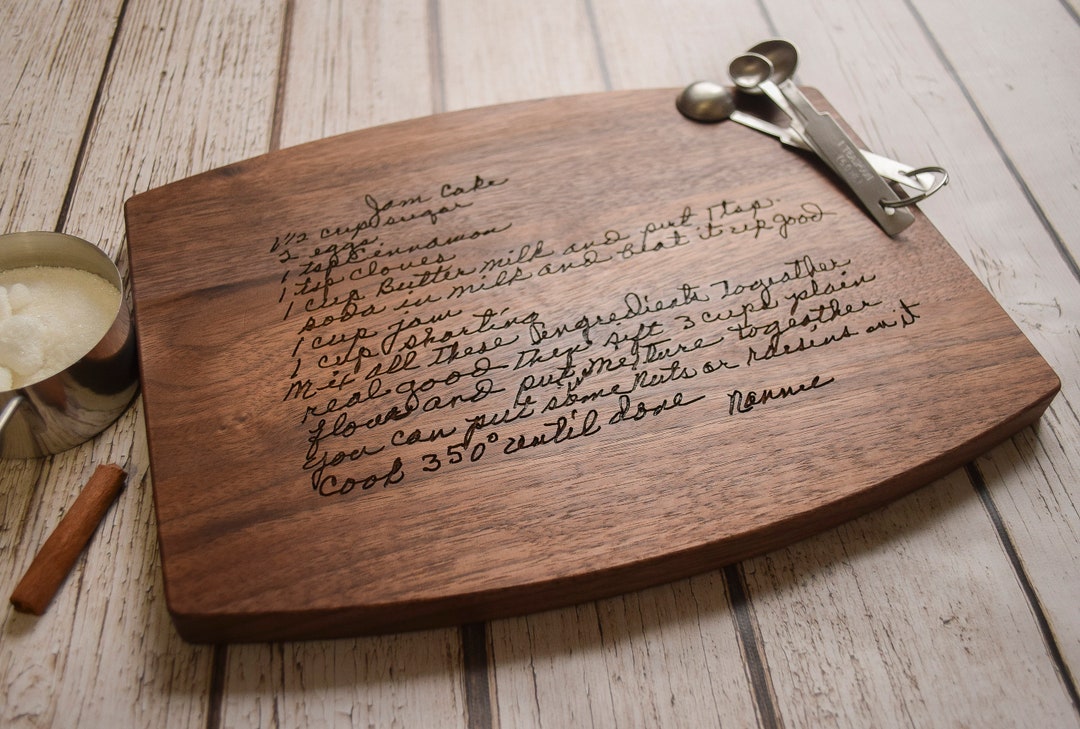 Jam Cake
1 1/2 cup sugar
2 eggs
1 tsp cinnamon
1 tsp cloves
1 cup Butter milk and put 1 tsp.
soda in milk and beat it up good
1 cup jam
1 cup shorting
mix all these Iengredients Togeather
real good then sift 3 cups plain
flour and put in meture togeather
you can put some nuts or raisins in it
Cook 350° until done Nannie